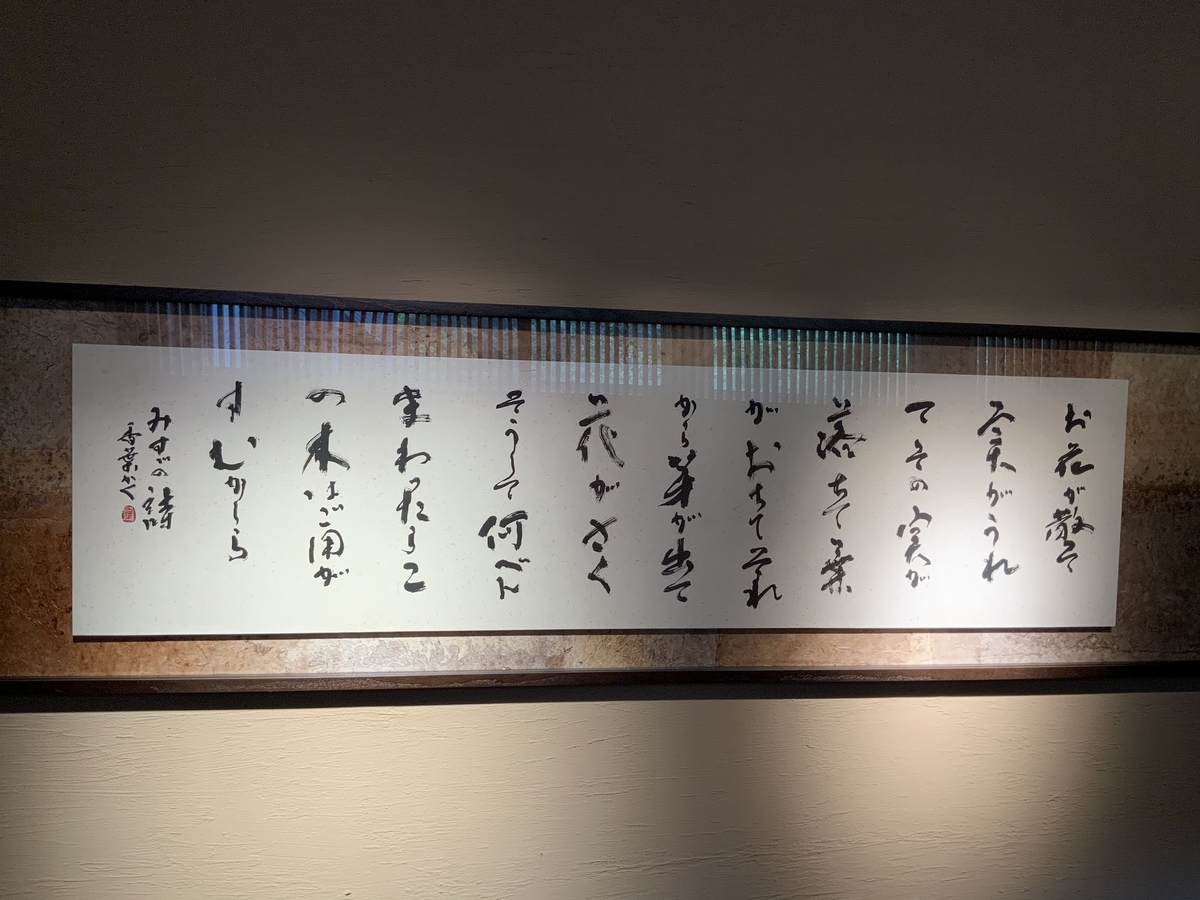 お花が散って
実がうれ
てその実が
落ちて葉
がおちてそれ
から芽が出て
花がさく
そうして何べん
まわったらこ
の木はご用が
すむかしら
みすゞの詩
香葉かく